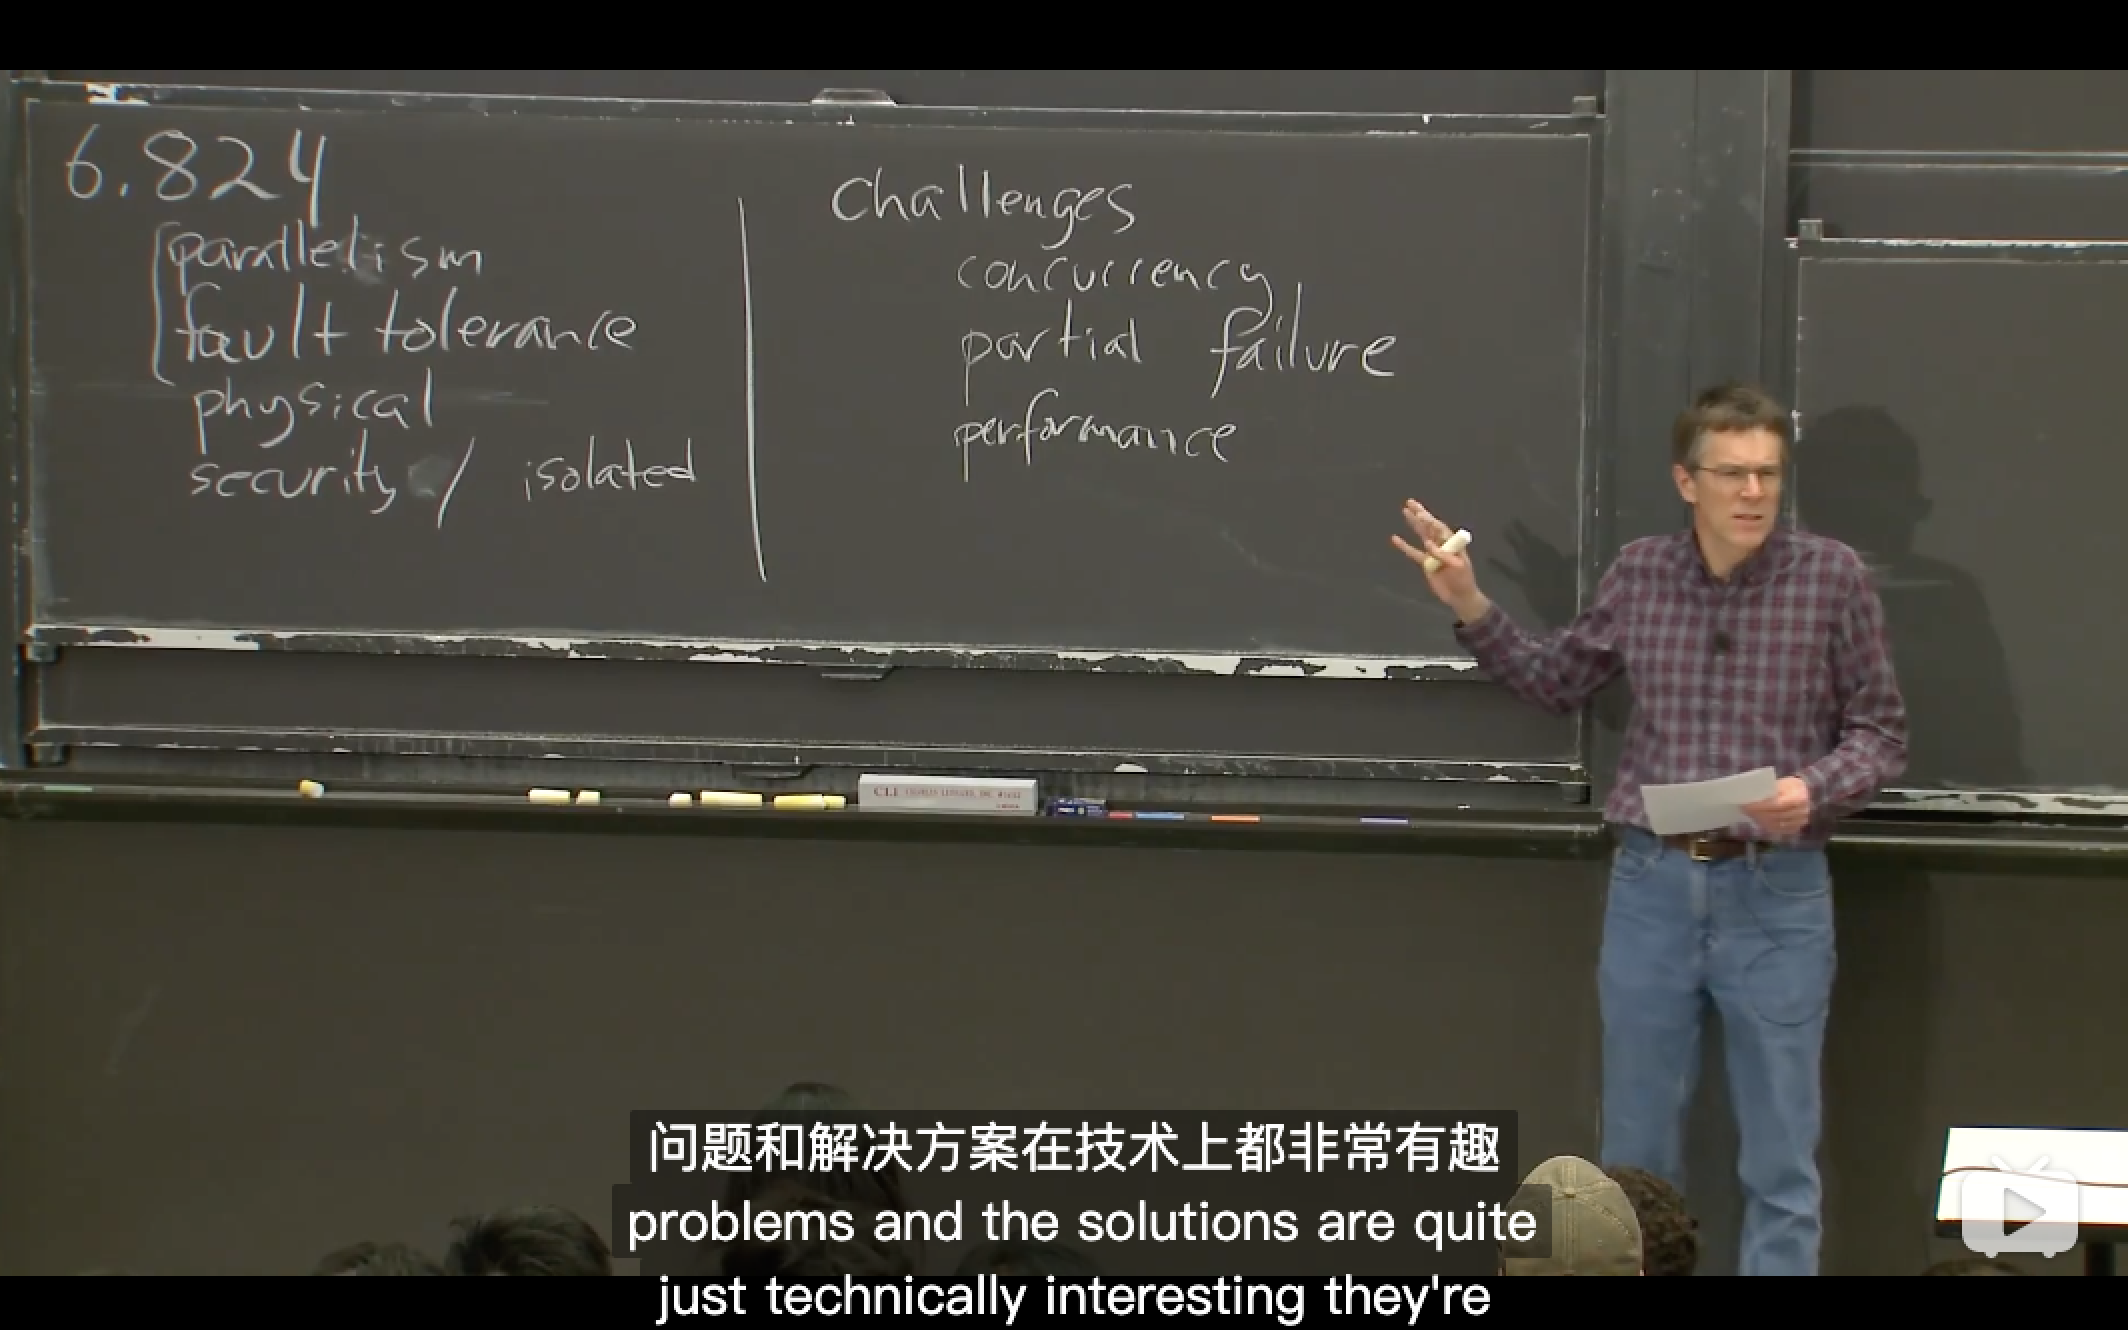 6.824
parallelism
fault tolerance
physical
security / isolated
Challenges
concurrency
partial failure
performance
CLI
问题和解决方案在技术上都非常有趣
problems and the solutions are quite
just technically interesting they're